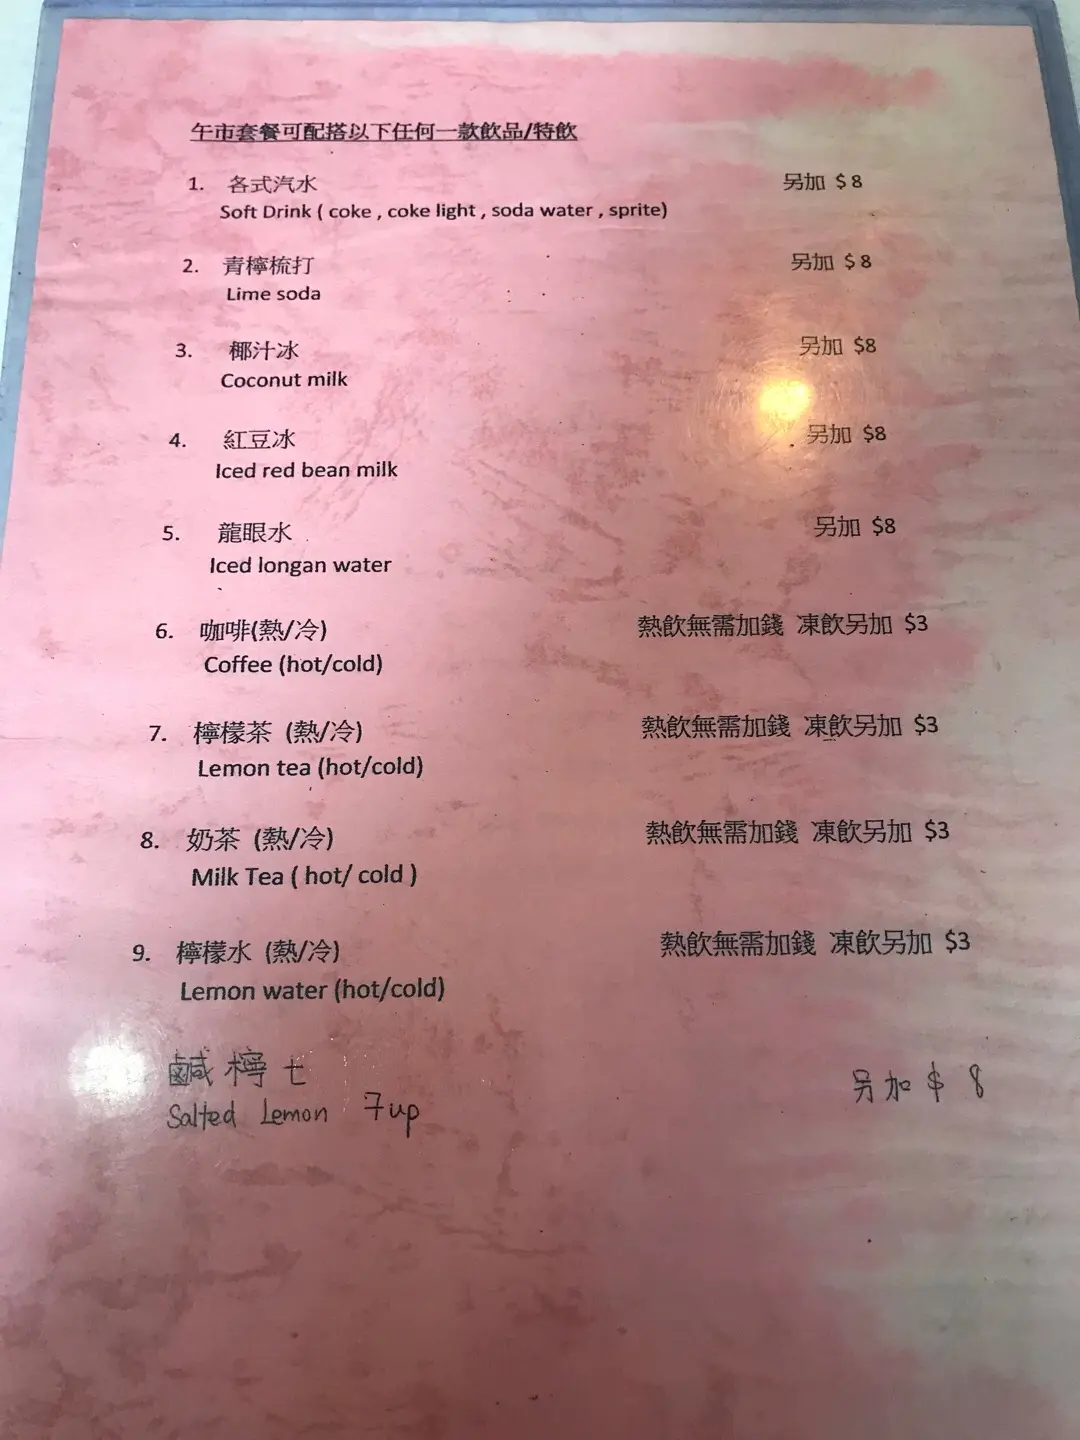 午市套餐可配搭以下任何一款飲品/特飲
1. 各式汽水 另加 $8
Soft Drink ( coke , coke light , soda water , sprite)
2. 青檸梳打 另加 $8
Lime soda
3. 椰汁冰 另加 $8
Coconut milk
4. 紅豆冰 另加 $8
Iced red bean milk
5. 龍眼水 另加 $8
Iced longan water
6. 咖啡(熱/冷) 熱飲無需加錢 凍飲另加 $3
Coffee (hot/cold)
7. 檸檬茶 (熱/冷) 熱飲無需加錢 凍飲另加 $3
Lemon tea (hot/cold)
8. 奶茶 (熱/冷) 熱飲無需加錢 凍飲另加 $3
Milk Tea ( hot/ cold )
9. 檸檬水 (熱/冷) 熱飲無需加錢 凍飲另加 $3
Lemon water (hot/cold)
鹹檸七 另加 $8
Salted Lemon 7up